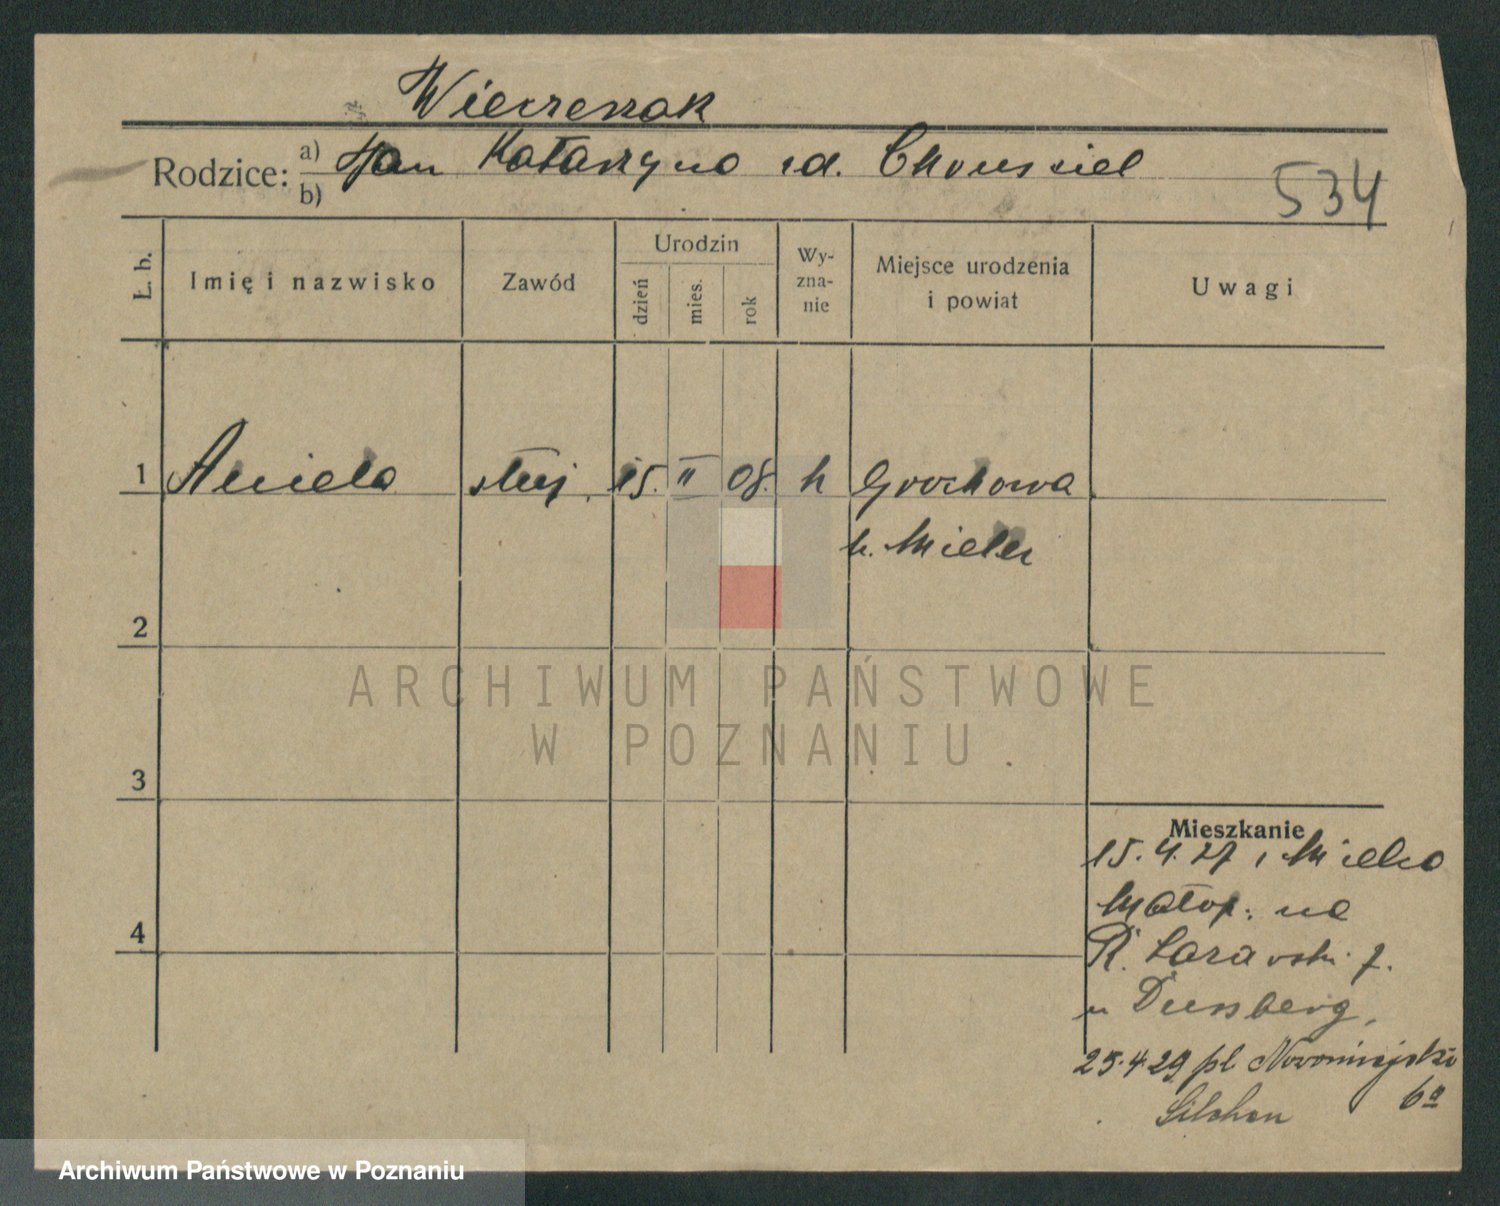 Wieczerzak
Rodzice: a) Jan Katarzyna zd.
b)
534
L. b.
Imię i nazwisko
Zawód
Urodzin
dzień
mies.
rok
Wy-
zna-
nie
Miejsce urodzenia
i powiat
Uwagi
1 Aniela służ. 15. II 08. k Grochowa
p. Mielec
2
3
4
Mieszkanie
15.4.27 z Mielca
Małop. na
R. 7.
u
25.4.29 pl Nowomiejski
6a
ARCHIWUM PAŃSTWOWE
W POZNANIU
Archiwum Państwowe w Poznaniu